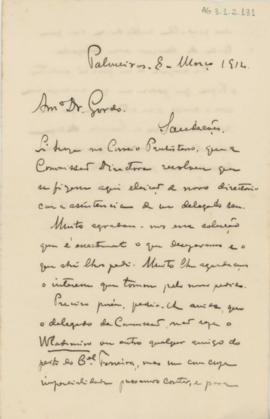 AG 3.1.2.131
Palmeiras, 8 - Março 1914
Amº Dr. Gordo.
Saudações.
Li hoje no Correio Paulistano, que a
Commissão Directora resolveu que
se fizesse aqui eleição de novo directorio
com a assistencia de um delegado seu.
Muito agradou-nos essa solução
que é exactamente o que desejavamos e o
que ahi lhe pedi. Muito lhe agradeço
o interesse que tomou pelo nosso pedido.
Preciso porém, pedir-lhe ainda, que
o delegado da Commissão, não seja o
Wladimiro ou outro qualquer amigo do
peito do Bel Ferreira, mas um em cuja
imparcialidade possamos contar, e para